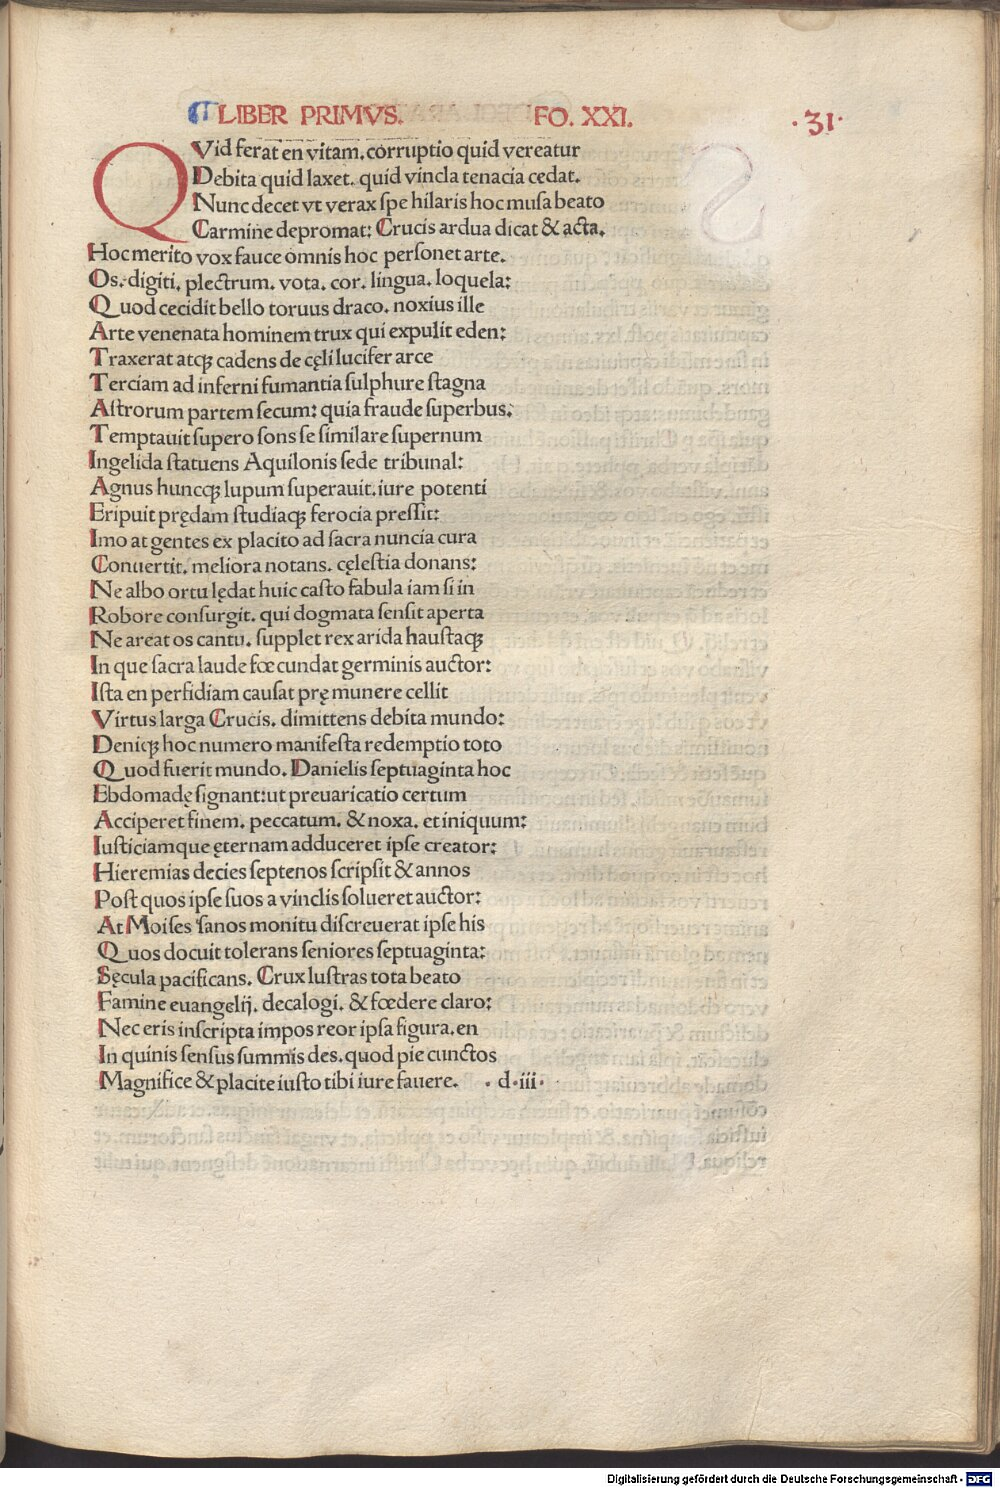 ¶ LIBER PRIMVS. FO. XXI. ·31·
QVid ferat en vitam. corruptio quid vereatur
Debita quid laxet. quid vincla tenacia cedat.
Nunc decet vt verax spe hilaris hoc musa beato
Carmine depromat: Crucis ardua dicat & acta.
Hoc merito vox fauce omnis hoc personet arte.
Os. digiti. plectrum. vota. cor. lingua. loquela:
Quod cecidit bello toruus draco. noxius ille
Arte venenata hominem trux qui expulit eden:
Traxerat atqꝫ cadens de cęli lucifer arce
Terciam ad inferni fumantia sulphure stagna
Astrorum partem secum: quia fraude superbus.
Temptauit supero sons se similare supernum
Ingelida statuens Aquilonis sede tribunal:
Agnus huncqꝫ lupum superauit. iure potenti
Eripuit prędam studiaqꝫ ferocia pressit:
Imo at gentes ex placito ad sacra nuncia cura
Conuertit. meliora notans. cęlestia donans:
Ne albo ortu lędat huic casto fabula iam si in
Robore consurgit. qui dogmata sensit aperta
Ne areat os cantu. supplet rex arida haustaqꝫ
In que sacra laude fœcundat germinis auctor:
Ista en perfidiam causat prę munere cellit
Virtus larga Crucis. dimittens debita mundo:
Deniqꝫ hoc numero manifesta redemptio toto
Quod fuerit mundo. Danielis septuaginta hoc
Ebdomadę signant: ut preuaricatio certum
Acciperet finem. peccatum. & noxa. et iniquum:
Iusticiamque ęternam adduceret ipse creator:
Hieremias decies septenos scripsit & annos
Post quos ipse suos a vinclis solueret auctor:
At Moises sanos monitu discreuerat ipse his
Quos docuit tolerans seniores septuaginta:
Sęcula pacificans. Crux lustras tota beato
Famine euangelij. decalogi. & fœdere claro:
Nec eris inscripta impos reor ipsa figura. en
In quinis sensus summis des. quod pie cunctos
Magnifice & placite iusto tibi iure fauere. · d·iii·
Digitalisierung gefördert durch die Deutsche Forschungsgemeinschaft - DFG